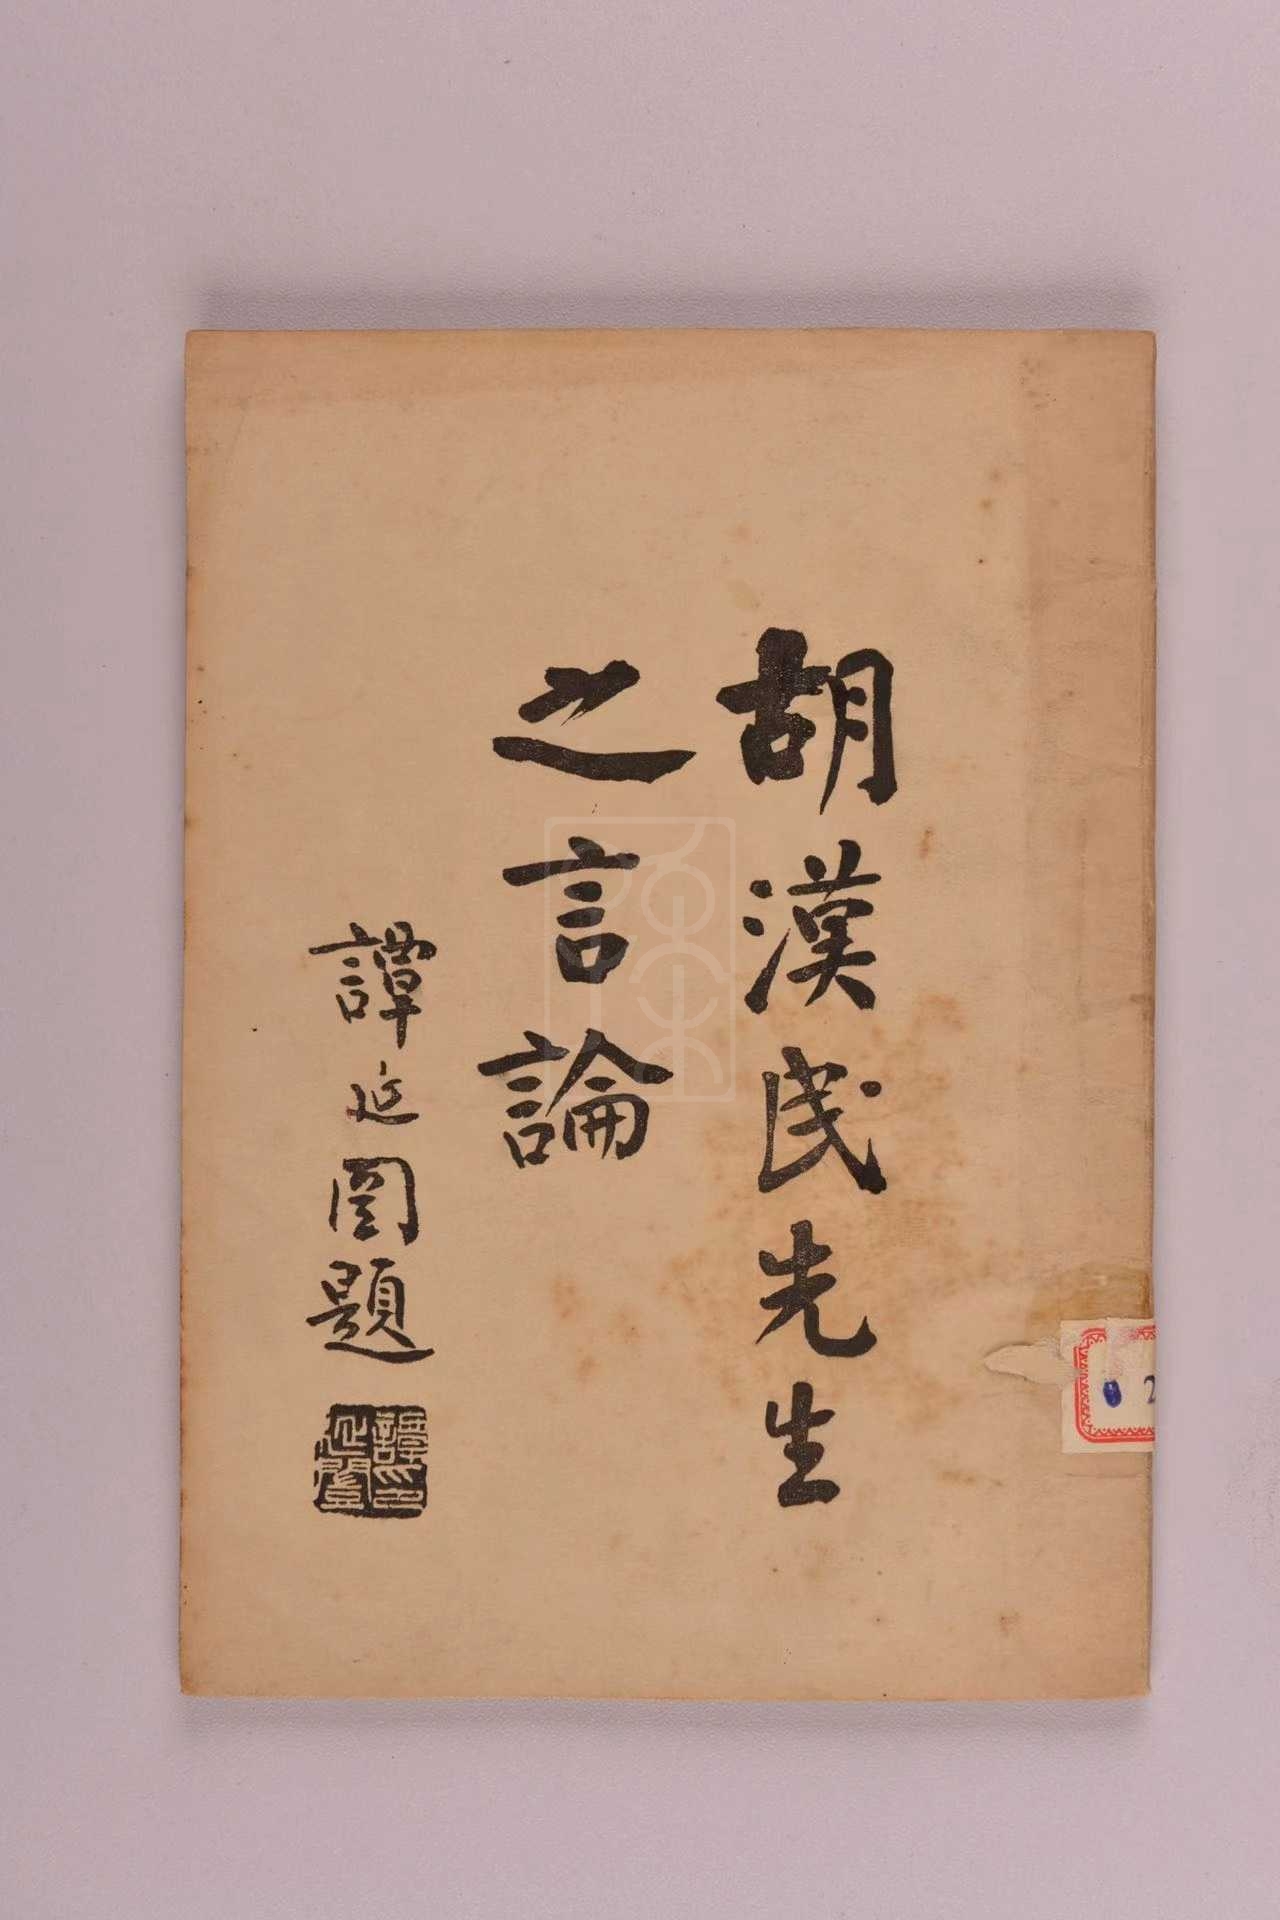 胡漢民先生
之言論
譚延闓題
譚延闓印
2